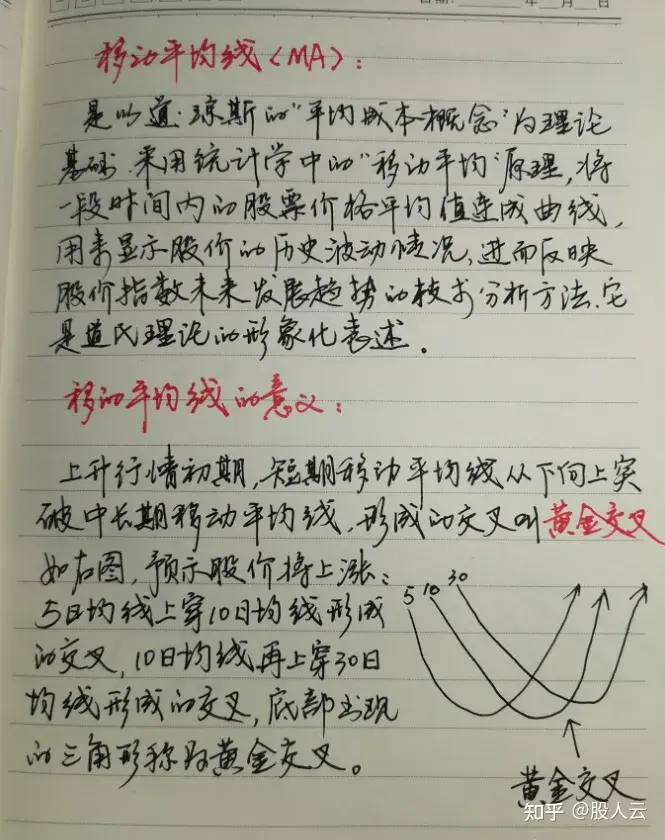 日期: 年 月 日
移动平均线(MA):
是以道·琼斯的"平均成本概念"为理论
基础,采用统计学中的"移动平均"原理,将
一段时间内的股票价格平均值连成曲线,
用来显示股价的历史波动情况,进而反映
股价指数未来发展趋势的技术分析方法.它
是道氏理论的形象化表述.
移动平均线的意义:
上升行情初期,短期移动平均线从下向上突
破中长期移动平均线,形成的交叉叫黄金交叉
如右图,预示股价将上涨:
5日均线上穿10日均线形成
的交叉,10日均线再上穿30日
均线形成的交叉,底部出现
的三角形称为黄金交叉。
5 10 30
黄金交叉
知乎 @股人云